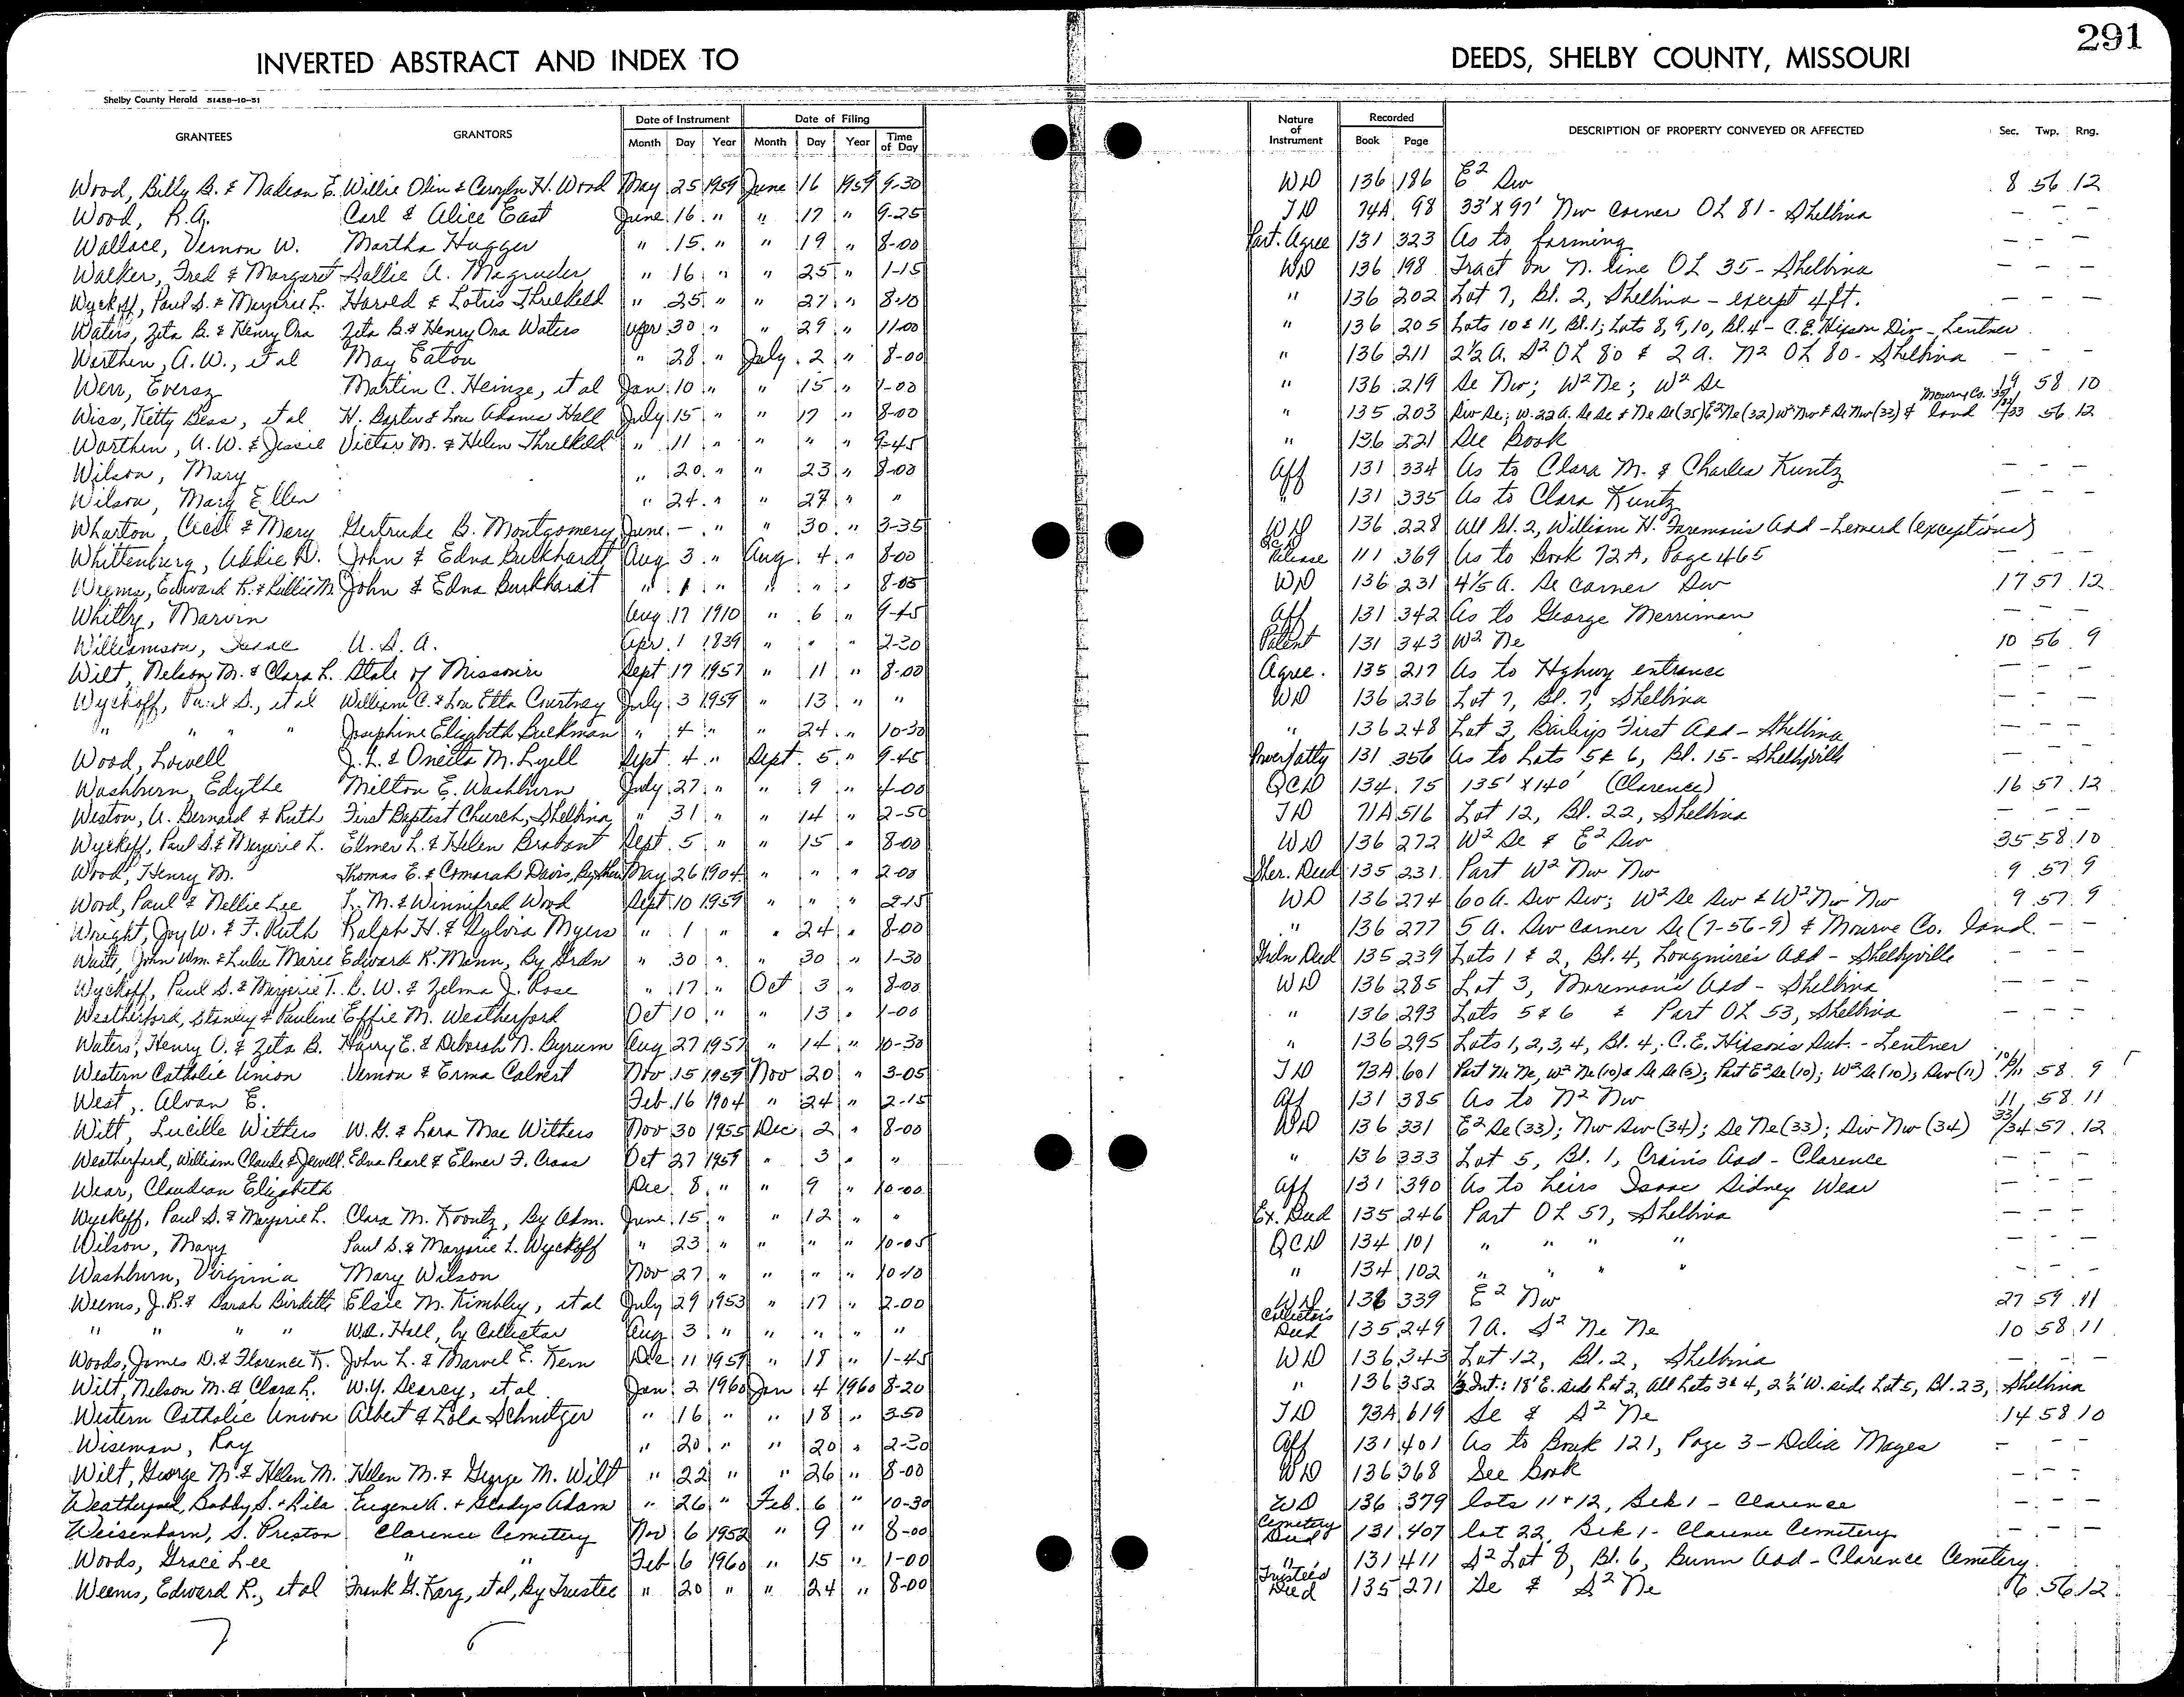 291
INVERTED ABSTRACT AND INDEX TO DEEDS, SHELBY COUNTY, MISSOURI
Shelby County Herald 51458-10-51
GRANTEES GRANTORS Date of Instrument Date of Filing Nature of Instrument Recorded DESCRIPTION OF PROPERTY CONVEYED OR AFFECTED Sec. Twp. Rng.
Month Day Year Month Day Year Time of Day Book Page
Wood, Billy B. & Nadean E. Willie Olin & Carolyn H. Wood May 25 1959 June 16 1959 9-30 WD 136 186 E² Sw 8 56 12
Wood, R.A. Carl & Alice East June 16 " " 17 " 9-25 TD 74A 98 33' X 97' Nw corner OL 81 - Shelbina — — —
Wallace, Vernon W. Martha Hugger " 15 " " 19 " 8-00 Part. Agree 131 323 As to farming — — —
Walker, Fred & Margaret Sallie A. Magruder " 16 " " 25 " 1-15 WD 136 198 Tract on N. line OL 35 - Shelbina — — —
Wyckoff, Paul S. & Marjorie L. Harold & Lotus Threlkeld " 25 " " 27 " 8-10 " 136 202 Lot 7, Bl. 2, Shelbina - except 4 ft. — — —
Waters, Zeta B. & Henry Ora Zeta B. & Henry Ora Waters Apr 30 " " 29 " 11-00 " 136 205 Lots 10 & 11, Bl. 1; Lots 8, 9, 10, Bl. 4 - C.E. Hixson Div - Lentner
Worthen, A.W., et al May Eaton " 28 " July 2 " 8-00 " 136 211 2½ A. S² OL 80 & 2 A. N² OL 80 - Shelbina — — —
Werr, Everaz Martin C. Heinze, et al Jan 10 " " 15 " 1-00 " 136 219 Se Nw; W² Ne; W² Se 19 58 10
Wiss, Kitty Bess, et al H. Baxter & Lou Adams Hall July 15 " " 17 " 8-00 " 135 203 Sw Se; W. 22 A. Se Se & Ne Se (35) E² Ne (32) W² Nw & Se Nw (33) & Monroe Co. land 35/32/33 56 12
Worthen, A.W. & Jessie Victor M. & Helen Threlkeld " 11 " " " " 9-45 " 136 221 See Book
Wilson, Mary " 20 " " 23 " 8-00 Aff 131 334 As to Clara M. & Charles Kuntz — — —
Wilson, Mary Ellen " 24 " " 27 " " " 131 335 As to Clara Kuntz — — —
Wharton, Cecil & Mary Gertrude B. Montgomery June — " " 30 " 3-35 WD 136 228 All Bl. 2, William H. Foreman's Add - Leonard (exceptions)
Whittenburg, Addie D. John & Edna Burkhardt Aug 3 " Aug 4 " 8-00 QCD Release 111 369 As to Book 72A, Page 465 — — —
Weems, Edward R. & Lillie M. John & Edna Burkhardt " 1 " " " " 8-05 WD 136 231 4⅕ A. Se corner Sw 17 57 12
Whitby, Marvin Aug 17 1910 " 6 " 9-45 Aff 131 342 As to George Merriman — — —
Williamson, Isaac U.S.A. Apr. 1 1839 " " " 2-30 Patent 131 343 W² Ne 10 56 9
Wilt, Nelson M. & Clara L. State of Missouri Sept 17 1957 " 11 " 8-00 Agree. 135 217 As to Highway entrance — — —
Wyckoff, Paul S., et al William C. & Lou Etta Courtney July 3 1959 " 13 " " WD 136 236 Lot 7, Bl. 7, Shelbina — — —
" " " " Josephine Elizabeth Buckman " 4 " " 24 " 10-30 " 136 248 Lot 3, Bailey's First Add - Shelbina — — —
Wood, Lowell J.L. & Oneita M. Lyell Sept. 4 " Sept. 5 " 9-45 Power/atty 131 356 As to Lots 5 & 6, Bl. 15 - Shelbyville — — —
Washburn, Edythe Milton E. Washburn July 27 " " 9 " 4-00 QCD 134 75 135' X 140' (Clarence) 16 57 12
Weston, A. Bernard & Ruth First Baptist Church, Shelbina " 31 " " 14 " 2-50 TD 71A 516 Lot 12, Bl. 22, Shelbina — — —
Wyckoff, Paul S. & Marjorie L. Elmer L. & Helen Brabant Sept. 5 " " 15 " 8-00 WD 136 272 W² Se & E² Sw 35 58 10
Wood, Henry M. Thomas E. & Comorah Davis, By Sher May 26 1904 " " " 2-00 Sher. Deed 135 231 Part W² Nw Nw 9 57 9
Wood, Paul & Nellie Lee L.M. & Winnifred Wood Sept 10 1959 " " " 2-15 WD 136 274 60 A. Sw Sw; W² Se Sw & W² Nw Nw 9 57 9
Wright, Joy W. & F. Ruth Ralph H. & Sylvia Myers " 1 " " 24 " 8-00 " 136 277 5 A. Sw corner Se (7-56-9) & Monroe Co. land — —
Waite, John Wm. & Lulu Marie Edward K. Mann, By Grdn " 30 " " 30 " 1-30 Grdn Deed 135 239 Lots 1 & 2, Bl. 4, Longmire's Add - Shelbyville — — —
Wyckoff, Paul S. & Marjorie L. C.W. & Zelma J. Rose " 17 " Oct 3 " 8-00 WD 136 285 Lot 3, Moreman's Add - Shelbina — — —
Weatherford, Stanley & Pauline Effie M. Weatherford Oct 10 " " 13 " 1-00 " 136 293 Lots 5 & 6 & Part OL 53, Shelbina — — —
Waters, Henry O. & Zeta B. Harry E. & Deborah N. Byrum Aug 27 1957 " 14 " 10-30 " 136 295 Lots 1, 2, 3, 4, Bl. 4; C.E. Hixson's Sub. - Lentner
Western Catholic Union Vernon & Erma Calvert Nov 15 1959 Nov 20 " 3-05 TD 73A 601 Part Ne Ne, W² Ne (10) & Se Se (3); Part E² Se (10); W² Se (10); Sw (11) 10/3/11 58 9
West, Alvan E. Feb. 16 1904 " 24 " 2-15 Aff 131 385 As to N² Nw 11 58 11
Witt, Lucille Withers W.G. & Lara Mae Withers Nov 30 1955 Dec 2 " 8-00 WD 136 331 E² Se (33); Nw Sw (34); Se Ne (33); Sw Nw (34) 33/34 57 12
Weatherford, William Claude & Jewell Edna Pearl & Elmer F. Cross Oct 27 1959 " 3 " " " 136 333 Lot 5, Bl. 1, Crain's Add - Clarence — — —
Wear, Claudean Elizabeth Dec 8 " " 9 " 10-00 Aff 131 390 As to heirs Isaac Sidney Wear — — —
Wyckoff, Paul S. & Marjorie L. Clara M. Koontz, By Adm. June 15 " " 12 " " Ex. Deed 135 246 Part OL 57, Shelbina — — —
Wilson, Mary Paul S. & Marjorie L. Wyckoff " 23 " " " " 10-05 QCD 134 101 " " " " — — —
Washburn, Virginia Mary Wilson Nov 27 " " " " 10-10 " 134 102 " " " " — — —
Weems, J.R. & Sarah Birdette Elsie M. Kimbley, et al July 29 1953 " 17 " 2-00 WD 136 339 E² Nw 27 59 11
" " " " W.A. Hall, by Collector Aug 3 " " " " " Collector's Deed 135 249 7 A. S² Ne Ne 10 58 11
Woods, James D. & Florence K. John L. & Marvel E. Kern Dec 11 1959 " 18 " 1-45 WD 136 343 Lot 12, Bl. 2, Shelbina — — —
Wilt, Nelson M. & Clara L. W.Y. Searcy, et al Jan 2 1960 Jan 4 1960 8-20 " 136 352 ½ Int.: 18' E. side Lot 2, All Lots 3 & 4, 2½' W. side Lot 5, Bl. 23, Shelbina
Western Catholic Union Albert & Lola Schnitzer " 16 " " 18 " 3-50 TD 73A 619 Se & S² Ne 14 58 10
Wiseman, Ray " 20 " " 20 " 2-30 Aff 131 401 As to Book 121, Page 3 - Delia Mayes — — —
Wilt, George M. & Helen M. Helen M. & George M. Wilt " 22 " " 26 " 8-00 WD 136 368 See Book — — —
Weatherford, Bobby S. & Lila Eugene A. & Gladys Adam " 26 " Feb. 6 " 10-30 WD 136 379 Lots 11 & 12, Blk 1 - Clarence — — —
Weisenborn, S. Preston Clarence Cemetery Nov 6 1952 " 9 " 8-00 Cemetery Deed 131 407 Lot 22, Blk 1 - Clarence Cemetery — — —
Woods, Grace Lee " " Feb 6 1960 " 15 " 1-00 " 131 411 S² Lot 8, Bl. 6, Bunn Add - Clarence Cemetery
Weems, Edward R., et al Frank G. Karg, et al, By Trustee " 20 " " 24 " 8-00 Trustee's Deed 135 271 Se & S² Ne 6 56 12
7 6